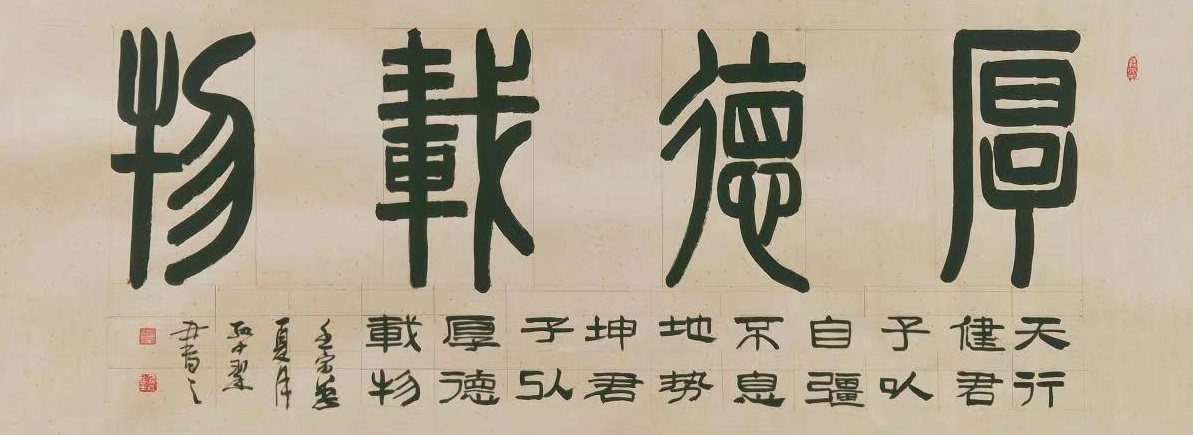 厚德載物
天行
健君
子以
自彊
不息
地势
坤君
子以
厚德
載物
壬寅
夏月
書之